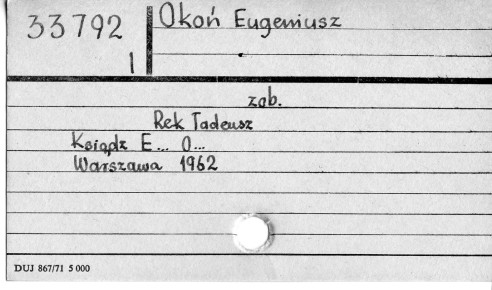 33792 Okoń Eugeniusz
I
zob.
Rek Tadeusz
Ksiądz E... O...
Warszawa 1962
DUJ 867/71 5 000